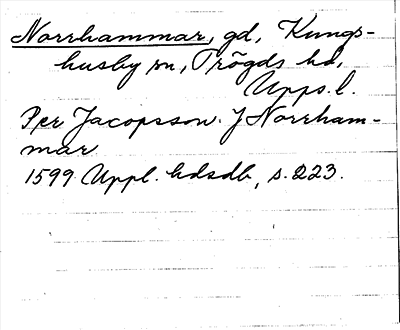 Norrhammar, gd, Kungs-
husby sn, Trögds hd,
Upps. l.
Per Jacopsson. J Norrham-
mar
1599 Uppl. hdsdb, s. 223.